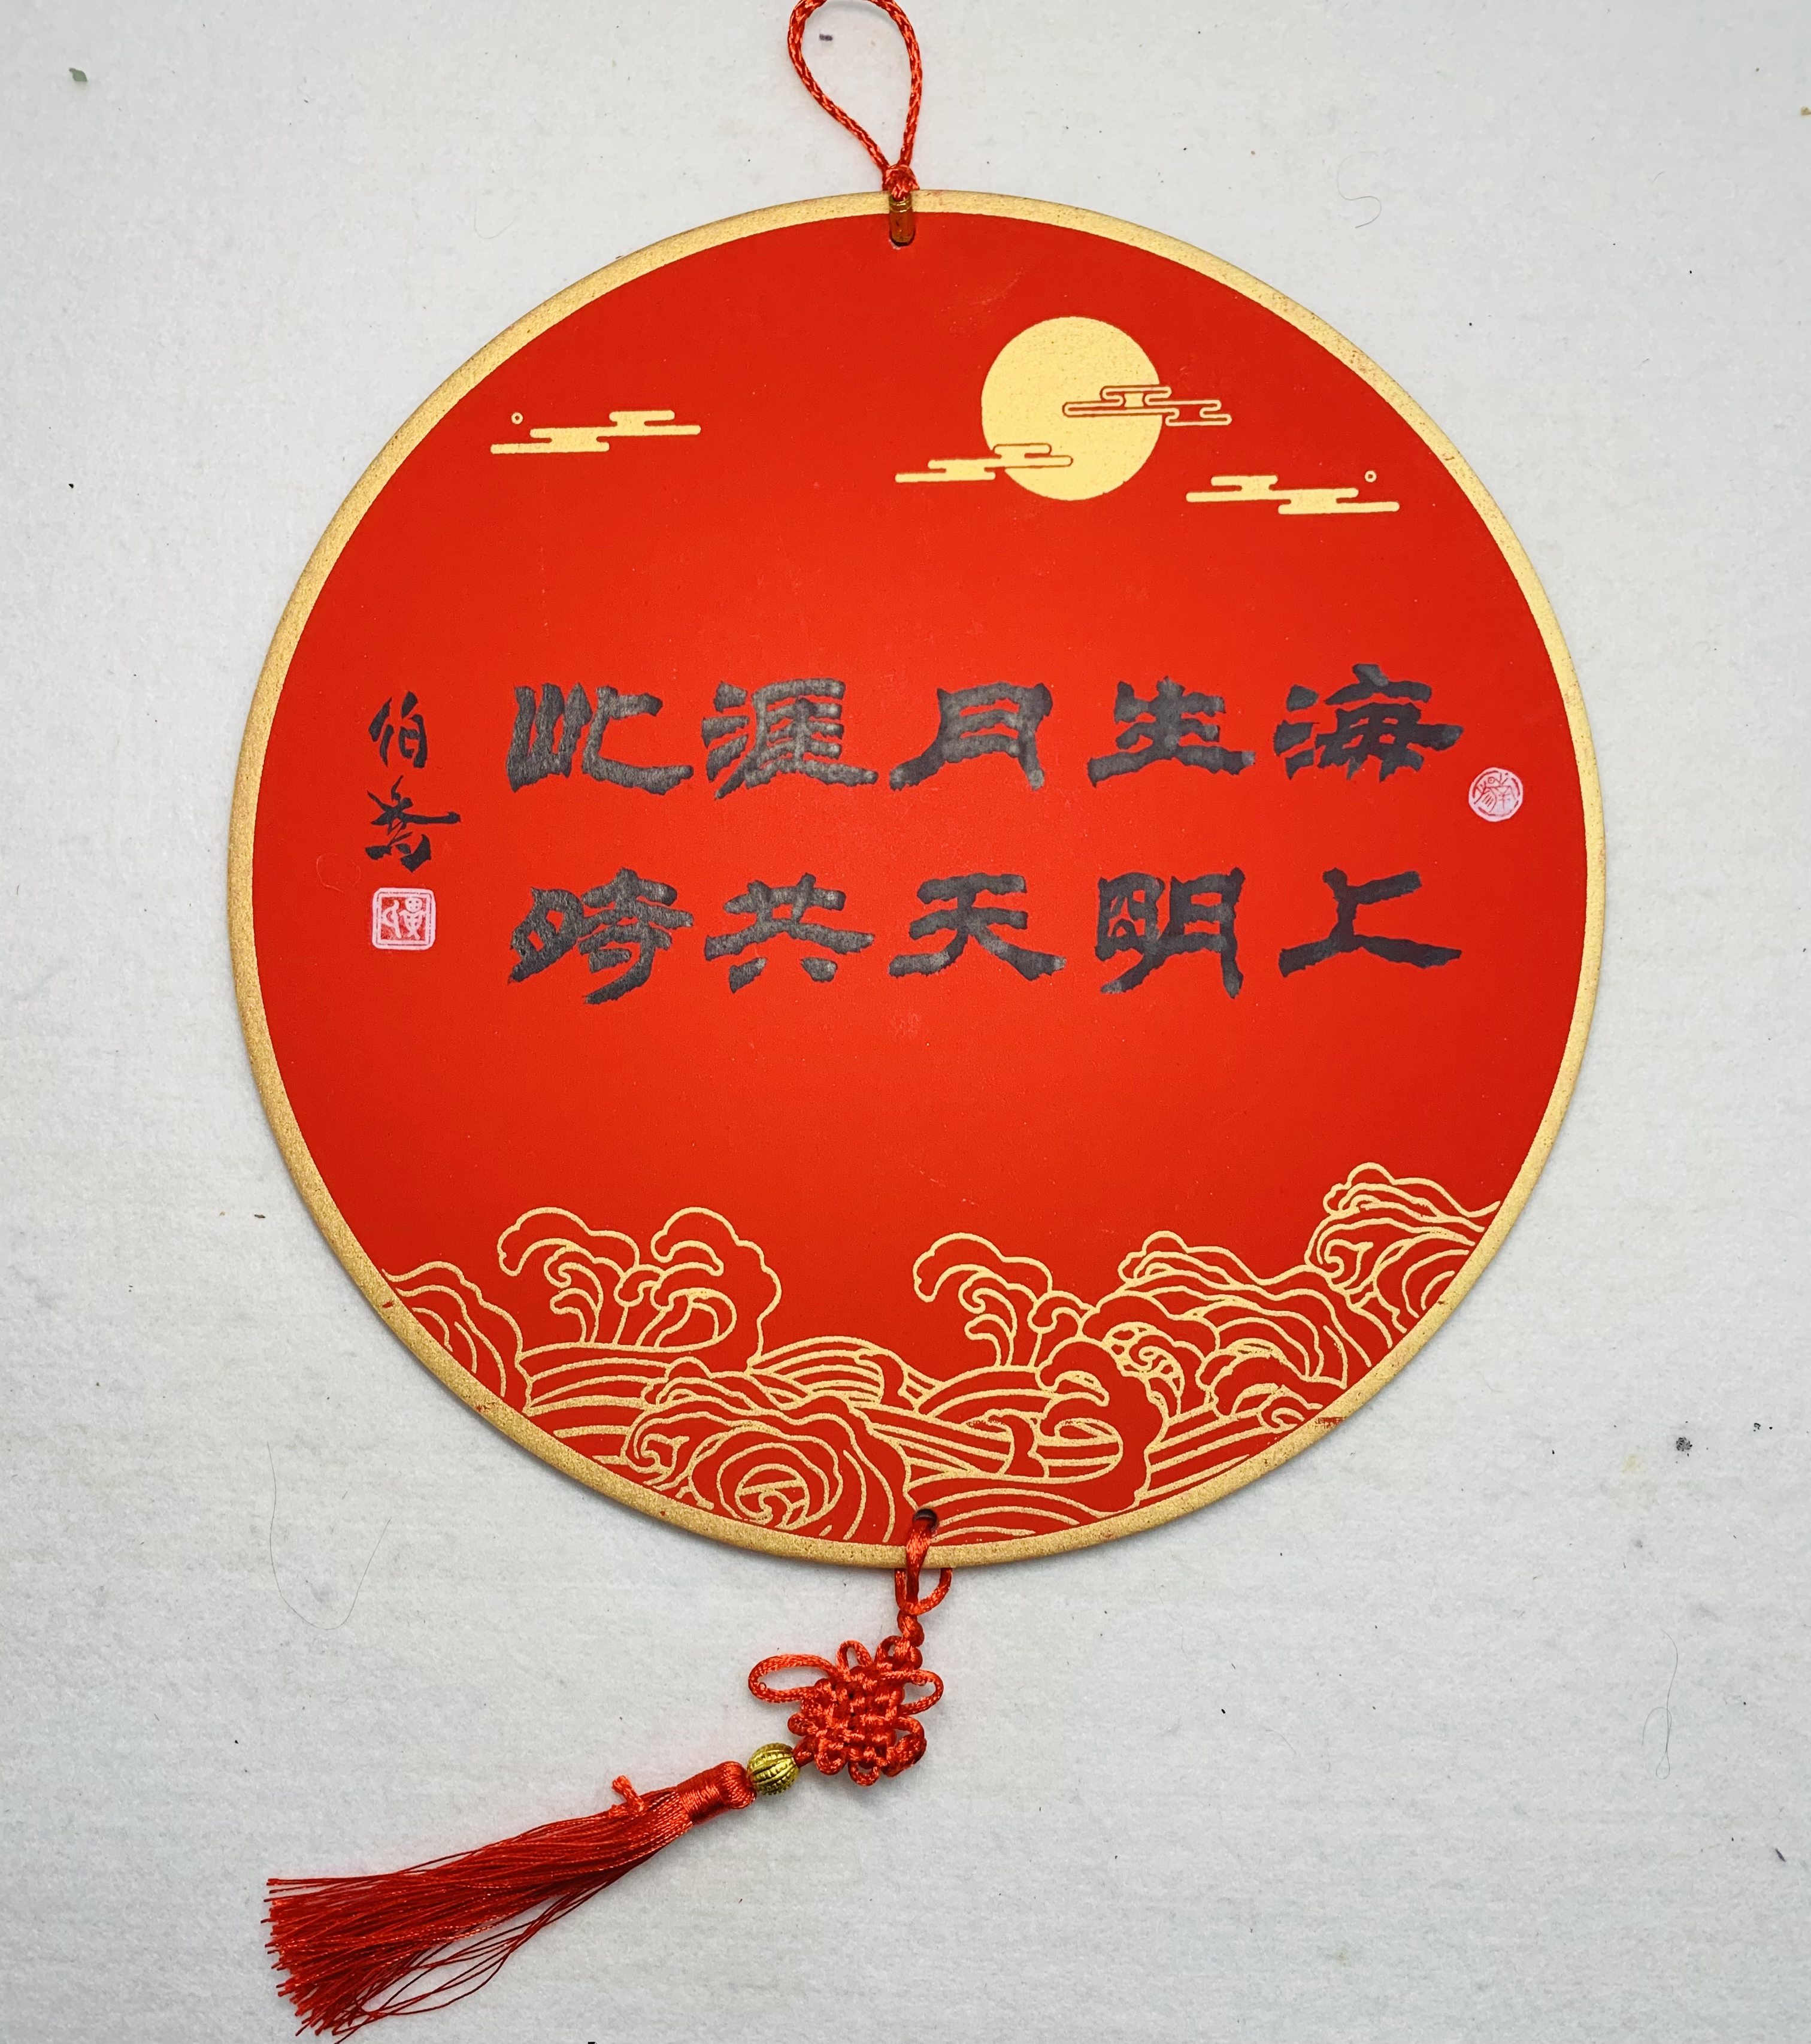 海上
生明
月天
涯共
此時
伯喬